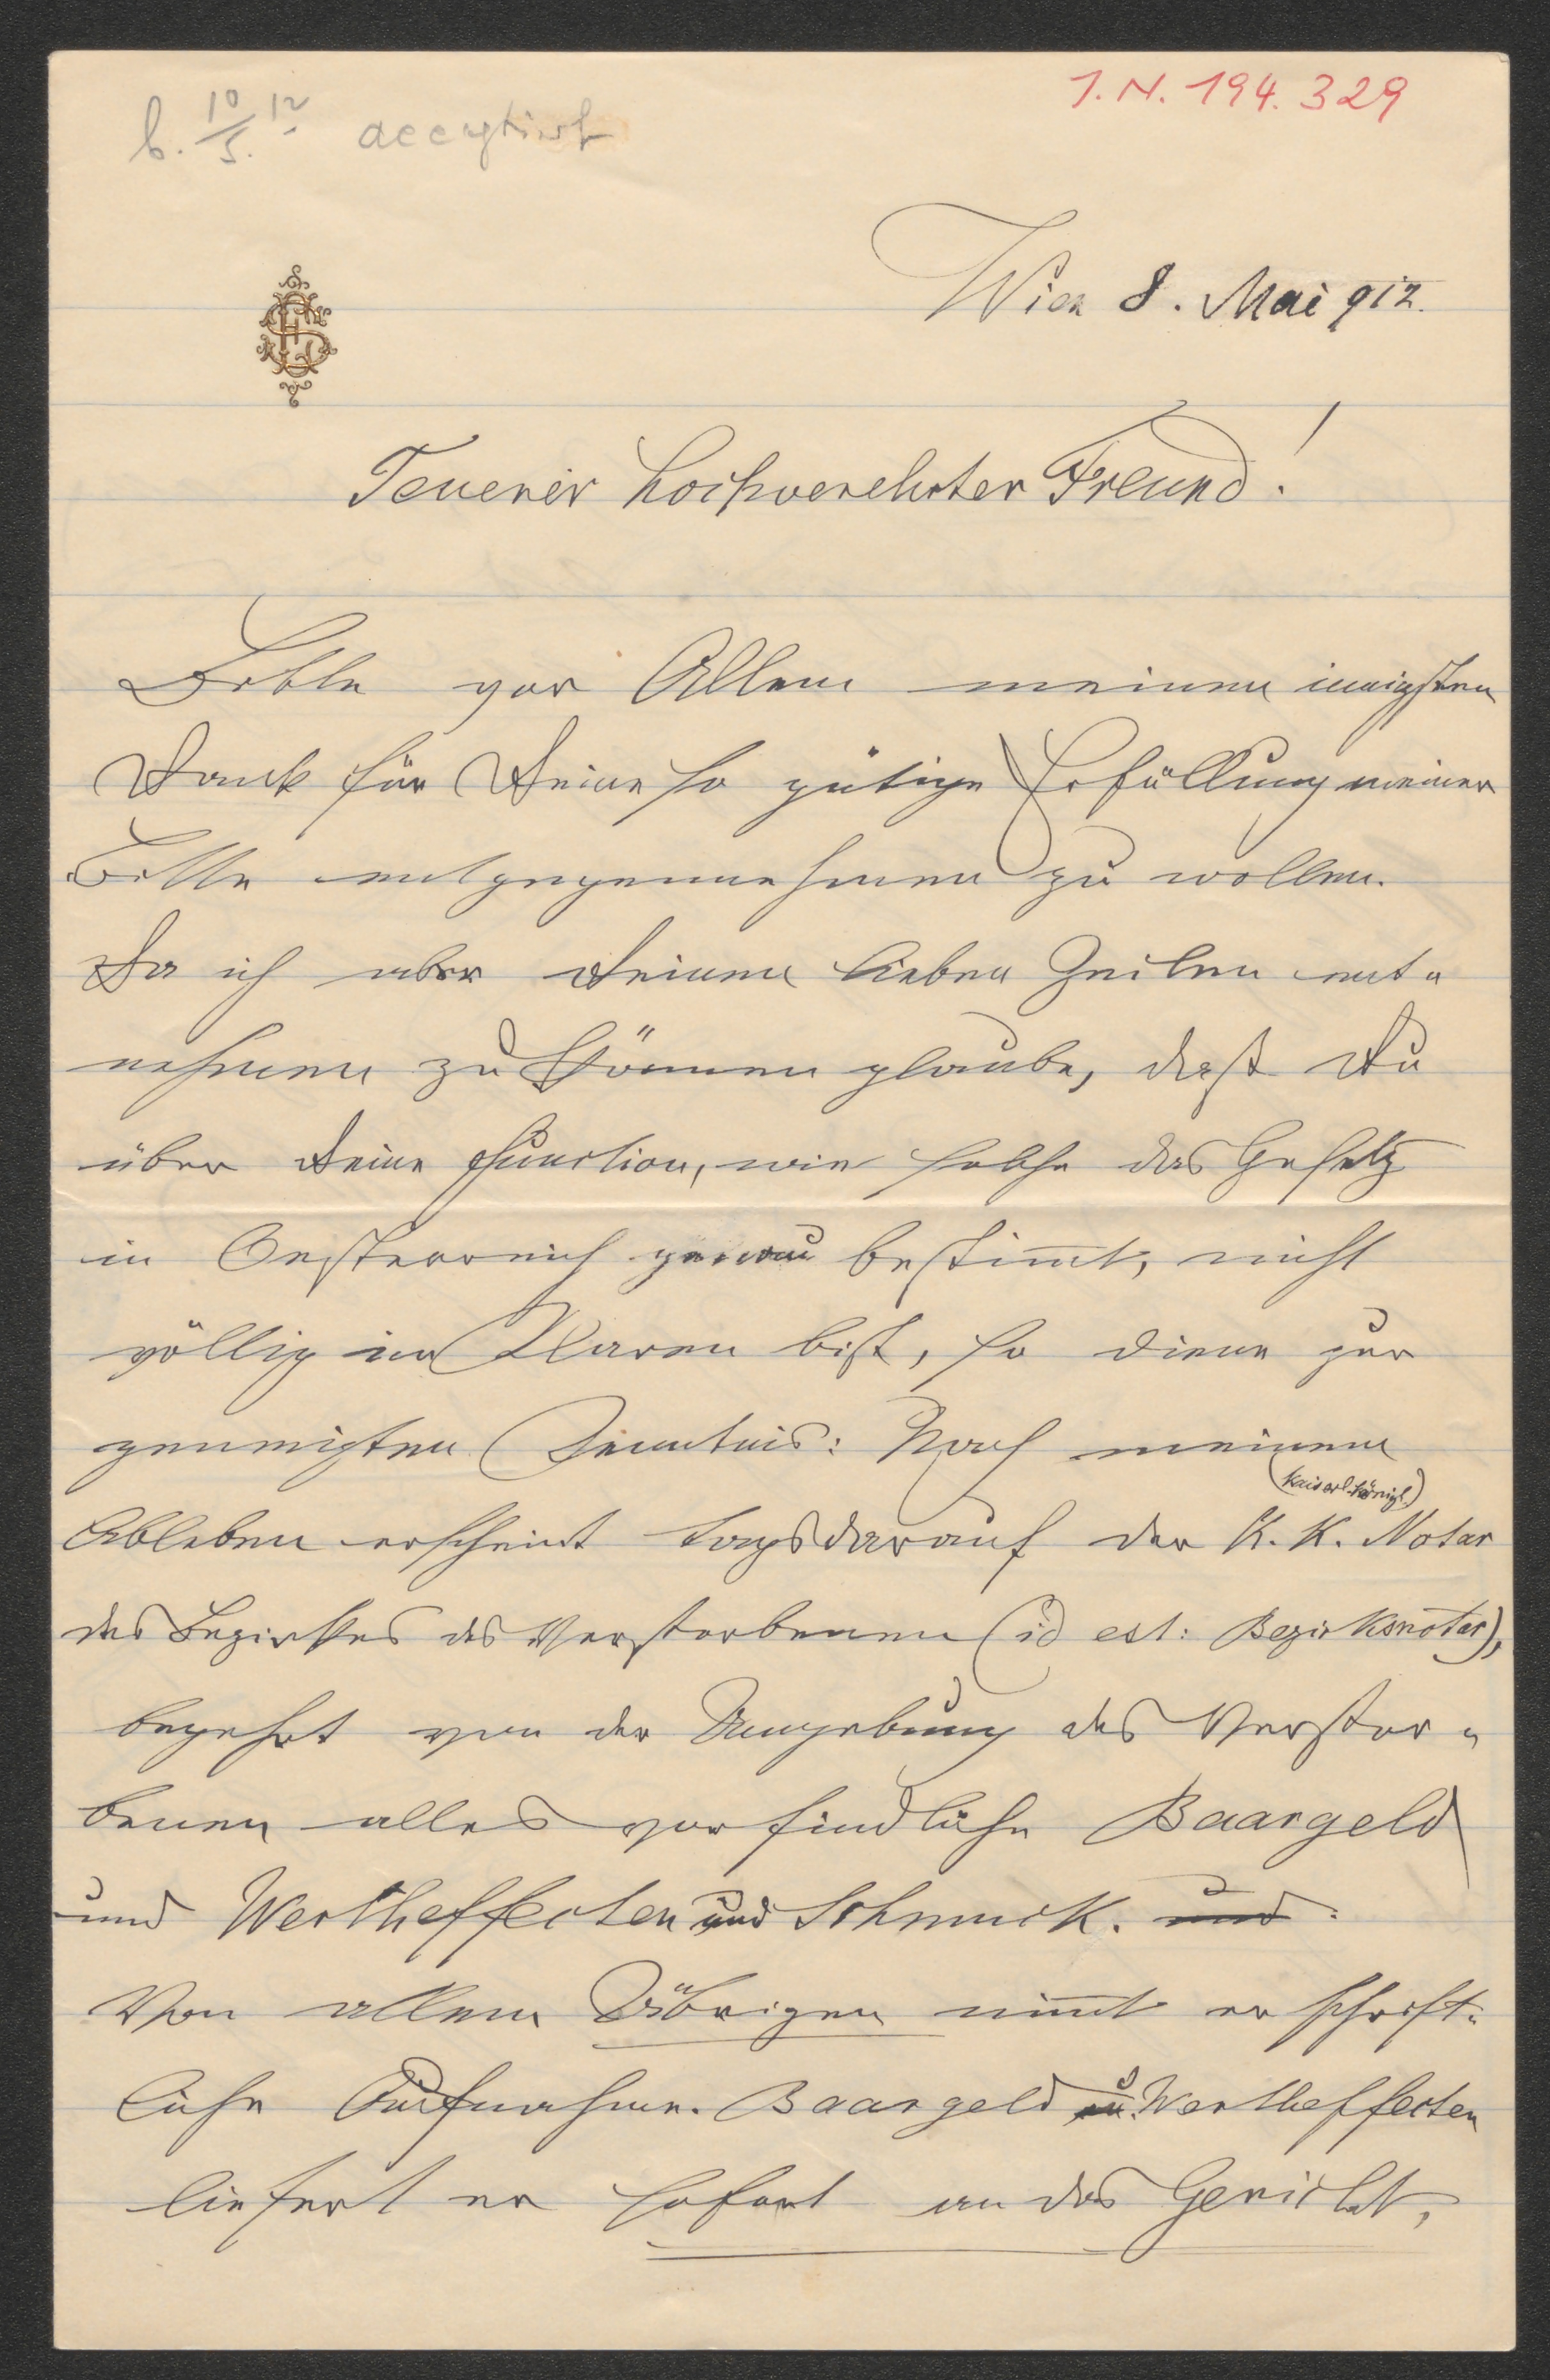 I.N. 194.329
b. 10/5. 12 acceptirt
Wien 8. Mai 912.
Teuerer hochverehrter Freund!
Bitte vor Allem meinen innigsten
Dank für Deine so gütige Erfüllung meiner
Bitte entgegennehmen zu wollen.
Da ich aber Deinen lieben Zeilen ent-
nehmen zu können glaube, dass Du
über Deine Function, wie solche das Gesetz
in Oesterreich genau bestimt, nicht
völlig im Klaren bist, so diene zur
geneigten Kenntnis: Nach meinem
(kaiserl. königl.)
Ableben erscheint tagsdarauf der K. K. Notar
des Bezirkes des Verstorbenen (id est: Bezirksnotar),
begehrt von der Umgebung des Verstor-
benen alles vorfindliche Baargeld
und Wertheffecten und Schmuck. und
Von allem Übrigen nimt er schrift-
liche Aufnahme. Baargeld u. Wertheffecten
liefert er sofort an das Gericht,